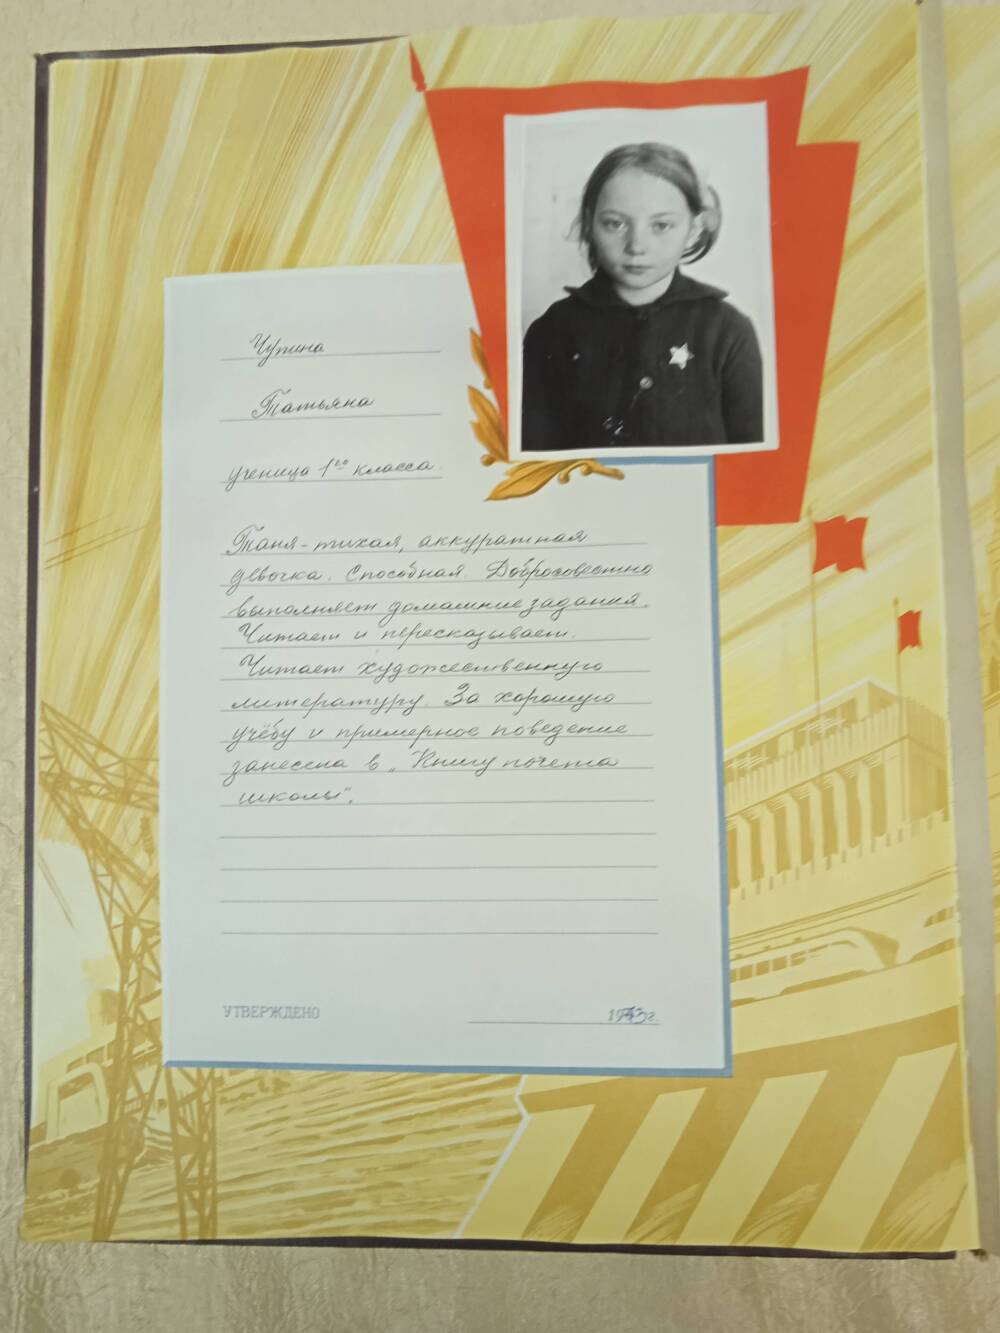 Чупина
Татьяна
ученица 1го класса.
Таня - тихая, аккуратная
девочка. Способная. Добросовестно
выполняет домашние задания.
Читает и пересказывает.
Читает художественную
литературу. За хорошую
учёбу и примерное поведение
занесена в „Книгу почета
школы".
УТВЕРЖДЕНО
1973г.